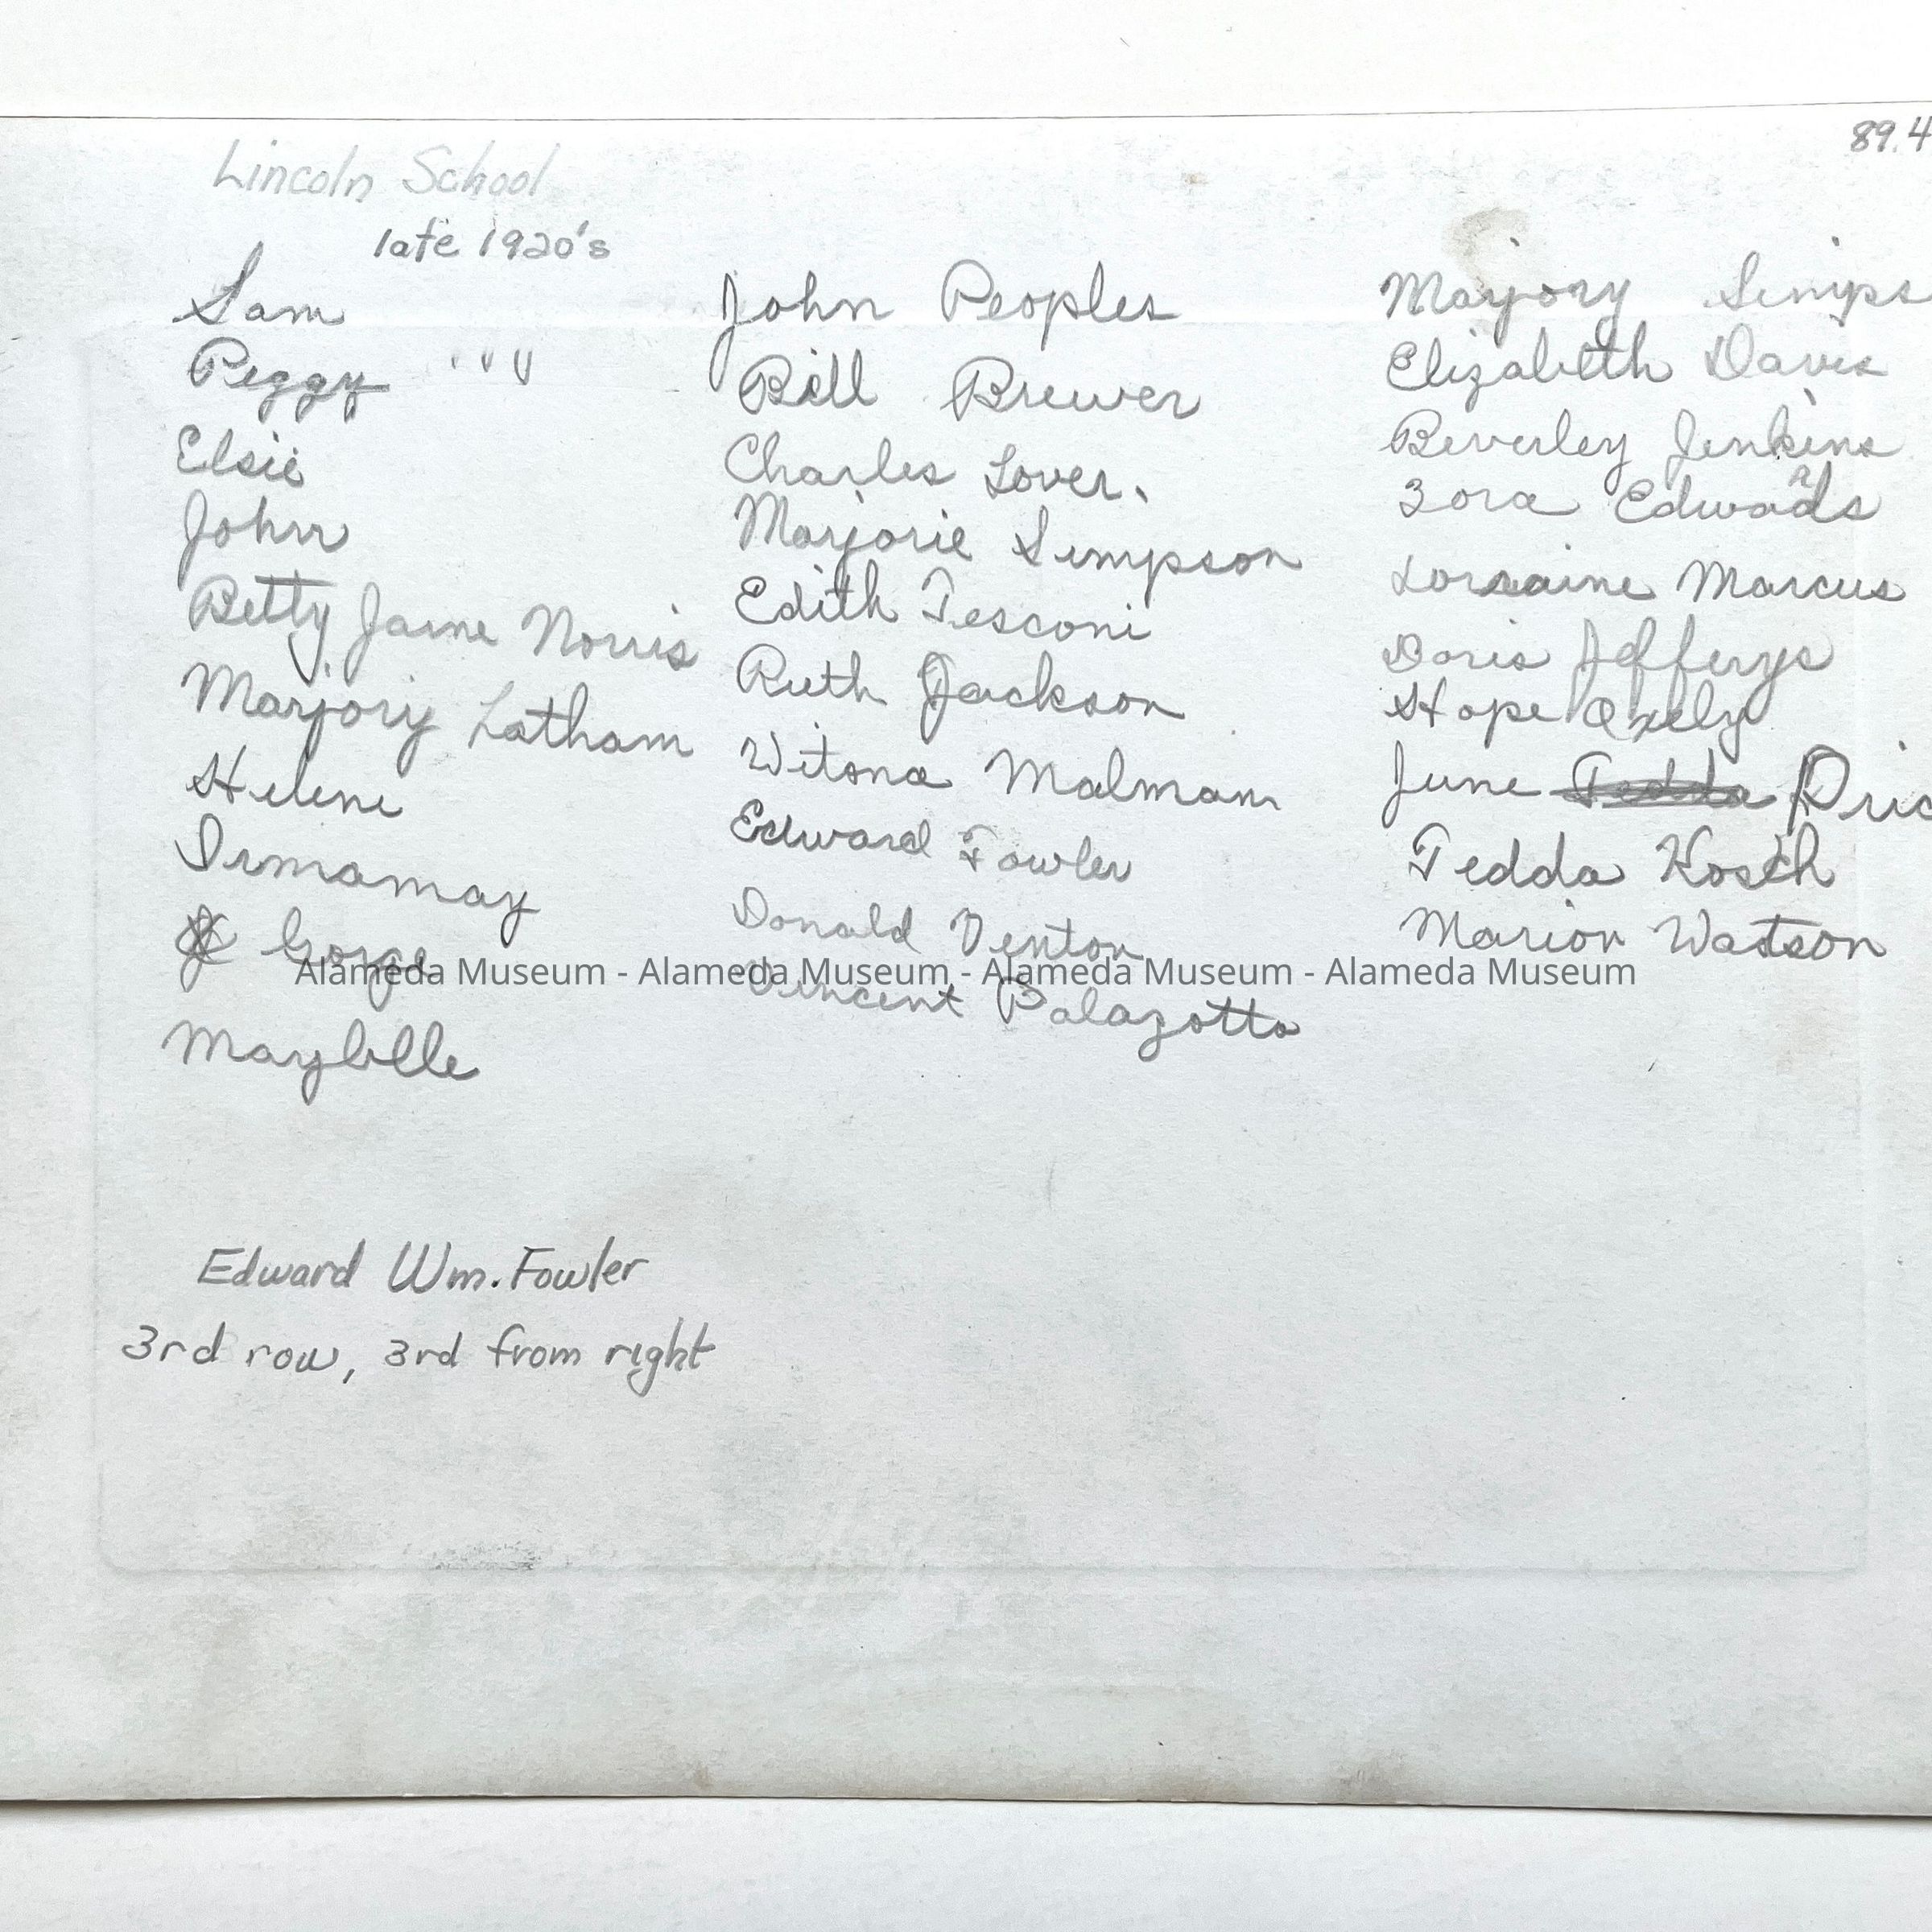 89.4
Lincoln School
late 1920's
Sam
Peggy " "
Elsie
John
Betty Jane Norris
Marjory Latham
Helene
Irmamay
Gorge
Maybelle
John Peoples
Bill Brewer
Charles Lover.
Marjorie Simpson
Edith Tesconi
Ruth Jackson
Witona Malmam
Edward Fowler
Donald Venton
Vincent Palazotto
Marjory Simps
Elizabeth Davis
Beverley Jenkins
Zora Edwards
Lorraine Marcus
Doris Jefferys
Hope Oxely
June Tedda Pric
Tedda Kosch
Marion Watson
Alameda Museum - Alameda Museum - Alameda Museum - Alameda Museum
Edward Wm. Fowler
3rd row, 3rd from right